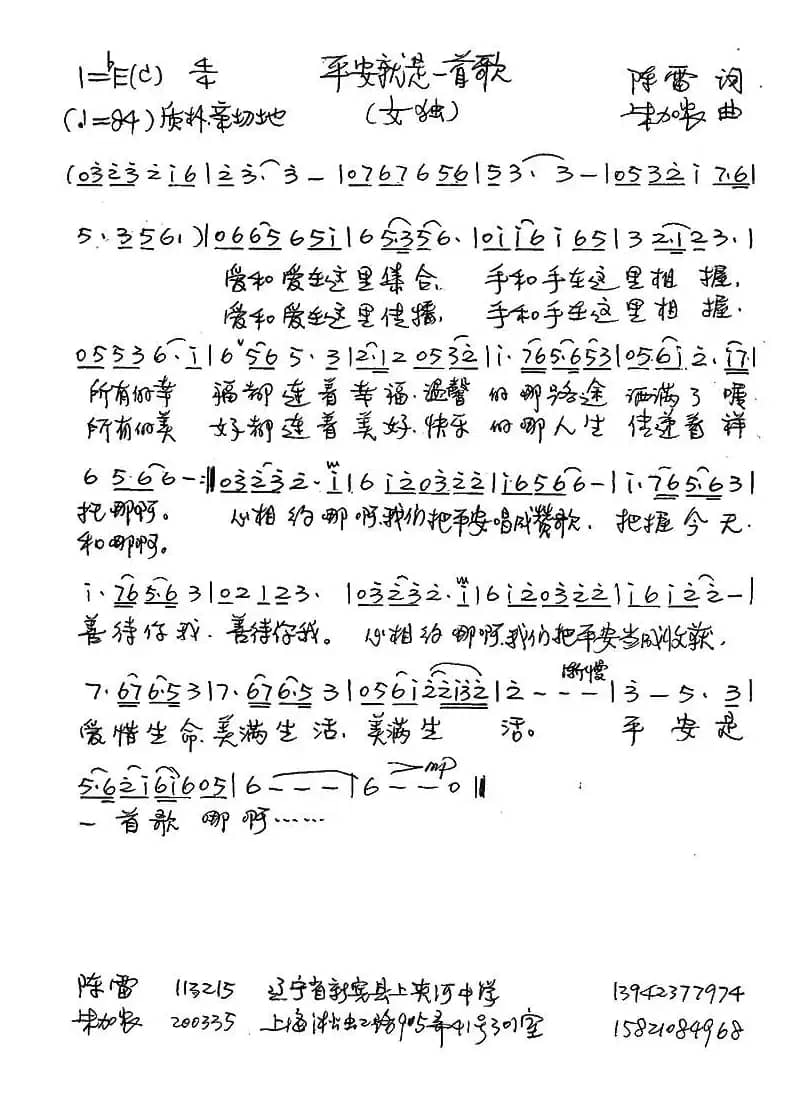 1=ᵇE(C) 4/4 平安就是一首歌 陈雷 词
(♩=84)质朴亲切地 (女独) 曲
(032321 6|23·3-|0767656|53·3-|0532176|
5·3561)|0665651|65356·|0116165|32123·|
爱和爱在这里集合, 手和手在这里相握,
爱和爱在这里传播, 手和手在这里相握.
05536·1|6565·3|2·120532|1·765653|05612·17|
所有的幸 福都连着幸福.温馨 的哪路途 洒满了暖
所有的美 好都连着美好.快乐 的哪人生 传递着祥
6566-:‖03232·1|612032 2|16566-|1·7656 3|
把哪啊。 心相约哪啊,我们把平安唱成赞歌. 把握今天.
和哪啊。
1·76563|02123·|03232·1|6120322|16122-|
善待你我.善待你我。心相约哪啊,我们把平安当成收获,
渐慢
7·67653|7·67653|056122132|2---|3-5·3|
爱惜生命.美满生活,美满生 活。 平 安是
mp
5·62161605|6---|6--0‖
一首歌哪啊……
陈雷 113215 辽宁省新宾县上夹河中学 13942377974
200335 上海淞虹路905弄41号301室 15821084968